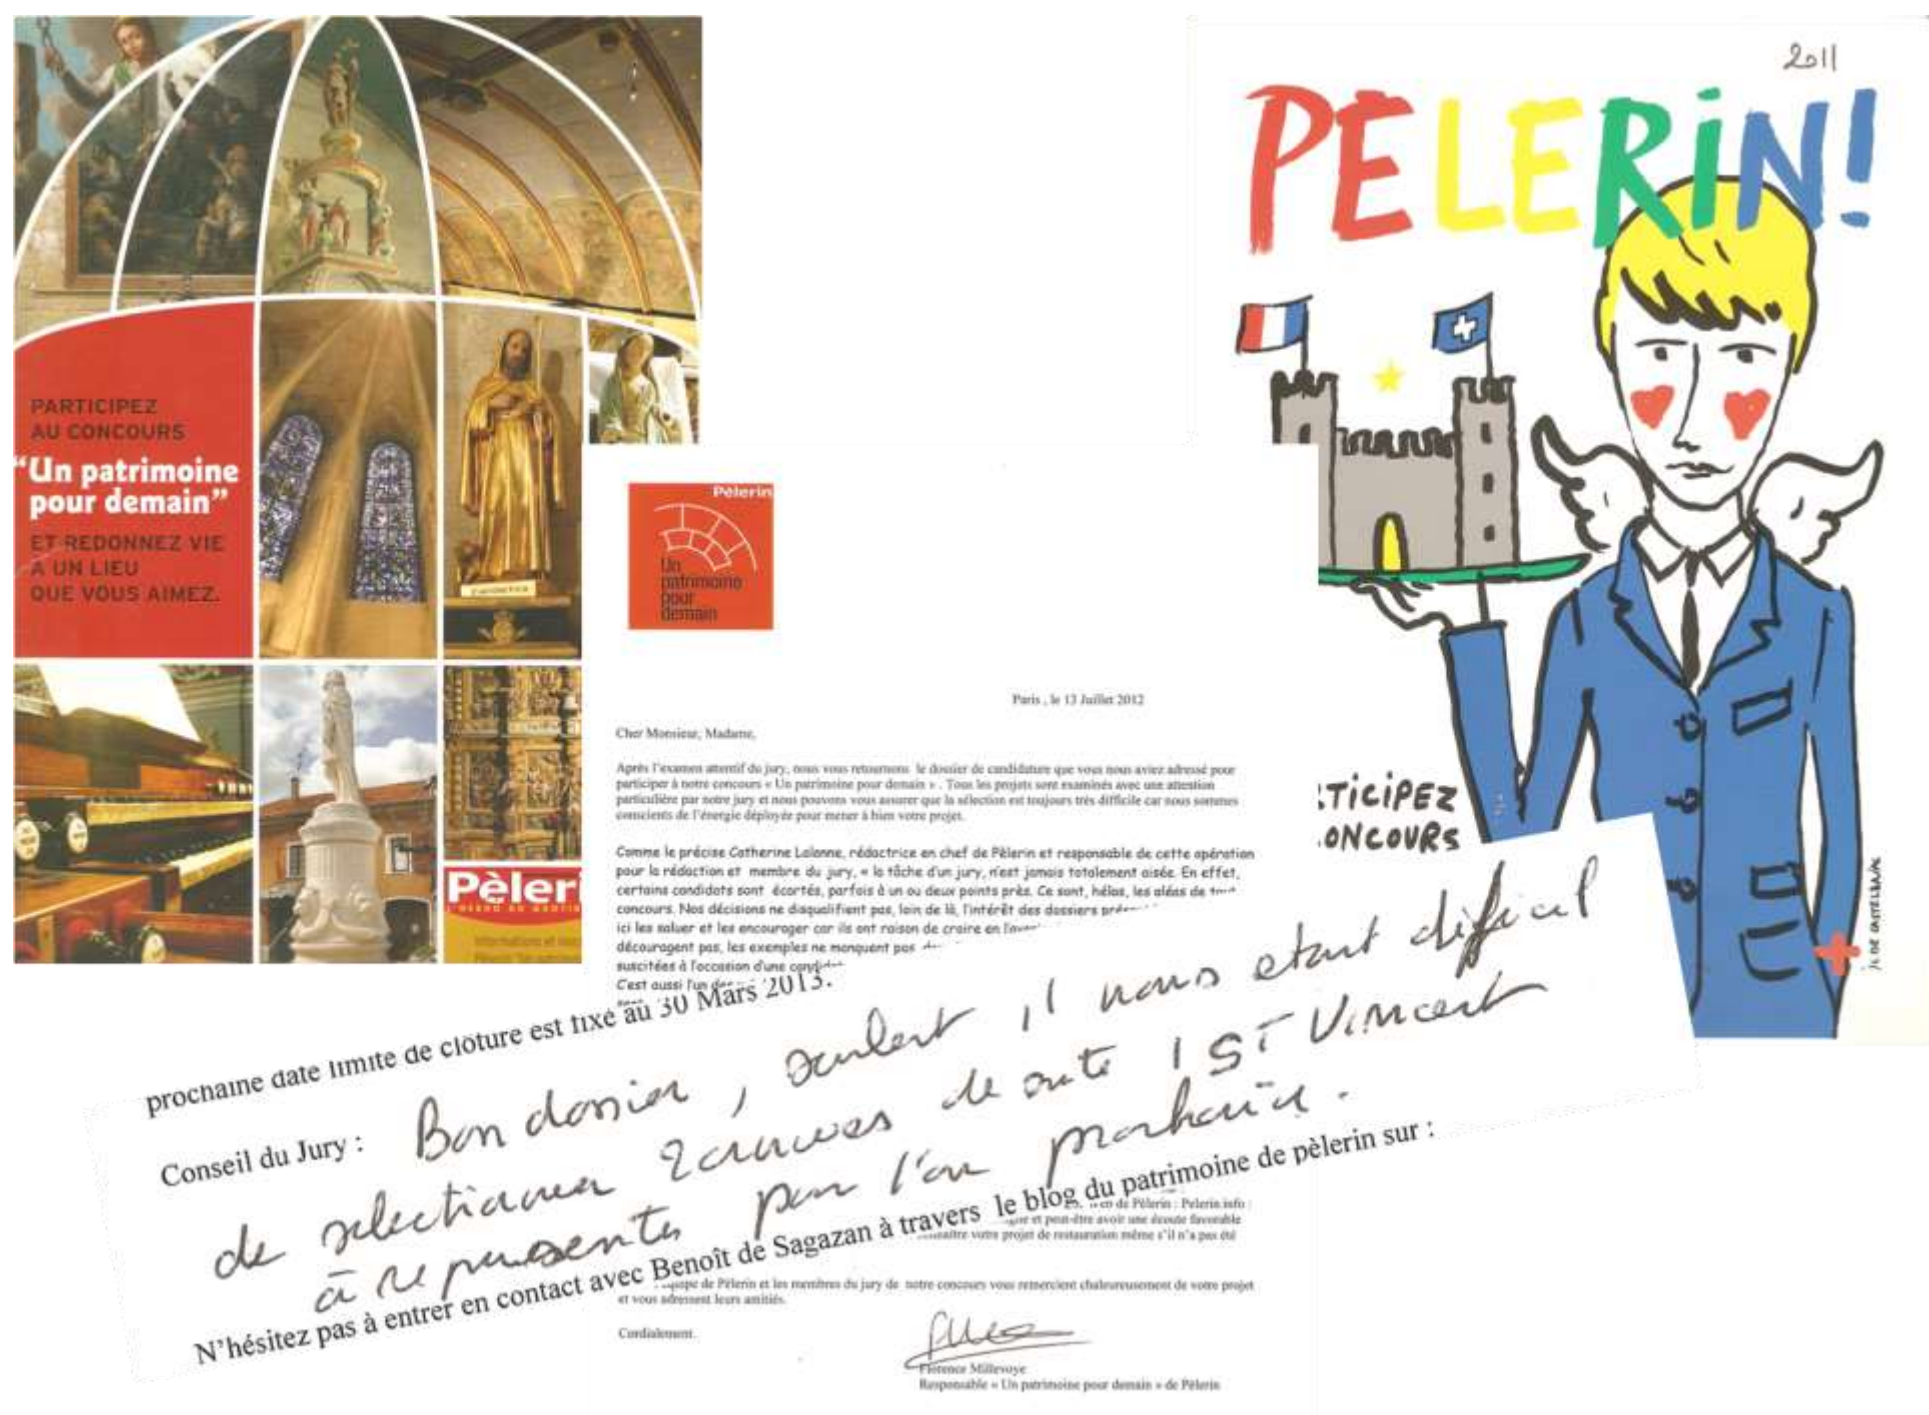 PARTICIPEZ
AU CONCOURS
“Un patrimoine
pour demain”
ET REDONNEZ VIE
A UN LIEU
QUE VOUS AIMEZ.
Pèleri
2011
PELERiN!
TiCiPEZ
ONCOURS
JC DE CASTELBAJAC
Pèlerin
Un
patrimoine
pour
demain
Paris , le 13 Juillet 2012
Cher Monsieur, Madame,
Après l'examen attentif du jury, nous vous retournons le dossier de candidature que vous nous aviez adressé pour
participer à notre concours « Un patrimoine pour demain » . Tous les projets sont examinés avec une attention
particulière par notre jury et nous pouvons vous assurer que la sélection est toujours très difficile car nous sommes
conscients de l'énergie déployée pour mener à bien votre projet.
Comme le précise Catherine Lalanne, rédactrice en chef de Pèlerin et responsable de cette opération
pour la rédaction et membre du jury, « la tâche d'un jury, n'est jamais totalement aisée. En effet,
certains candidats sont écartés, parfois à un ou deux points près. Ce sont, hélas, les aléas de
concours. Nos décisions ne disqualifient pas, loin de là, l'intérêt des dossiers
ici les saluer et les encourager car ils ont raison de croire en
découragent pas, les exemples ne manquent pas
suscitées à l'occasion d'une
C'est aussi l'un
prochaine date limite de clôture est fixé au 30 Mars 2013.
Conseil du Jury : Bon dossier, il nous etant dificil
de selectionner 2 de suite 1 ST Vincent
à representer pour l'an prochain.
N'hésitez pas à entrer en contact avec Benoît de Sagazan à travers le blog du patrimoine de pèlerin sur :
de Pèlerin : Pelerin.info
et peut-être avoir une écoute favorable
votre projet de restauration même s'il n'a pas été
de Pèlerin et les membres du jury de notre concours vous remercient chaleureusement de votre projet
et vous adressent leurs amitiés.
Cordialement.
Florence Millevoye
Responsable « Un patrimoine pour demain » de Pèlerin